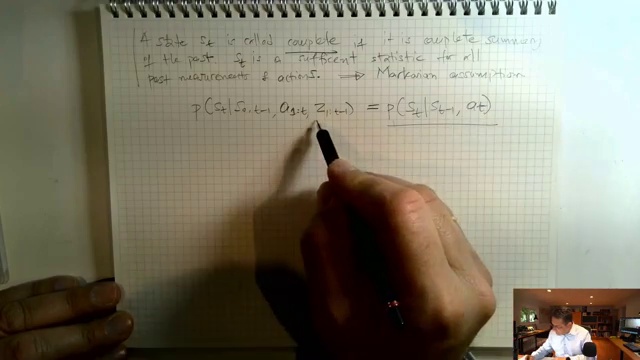 A state St is called complete if it is complete summary
of the past St is a sufficient statistic for all
past measurements & actions. ⟹ Markovian assumption
p(St|S0:t-1, a1:t, z1:t-1) = p(St|St-1, at)